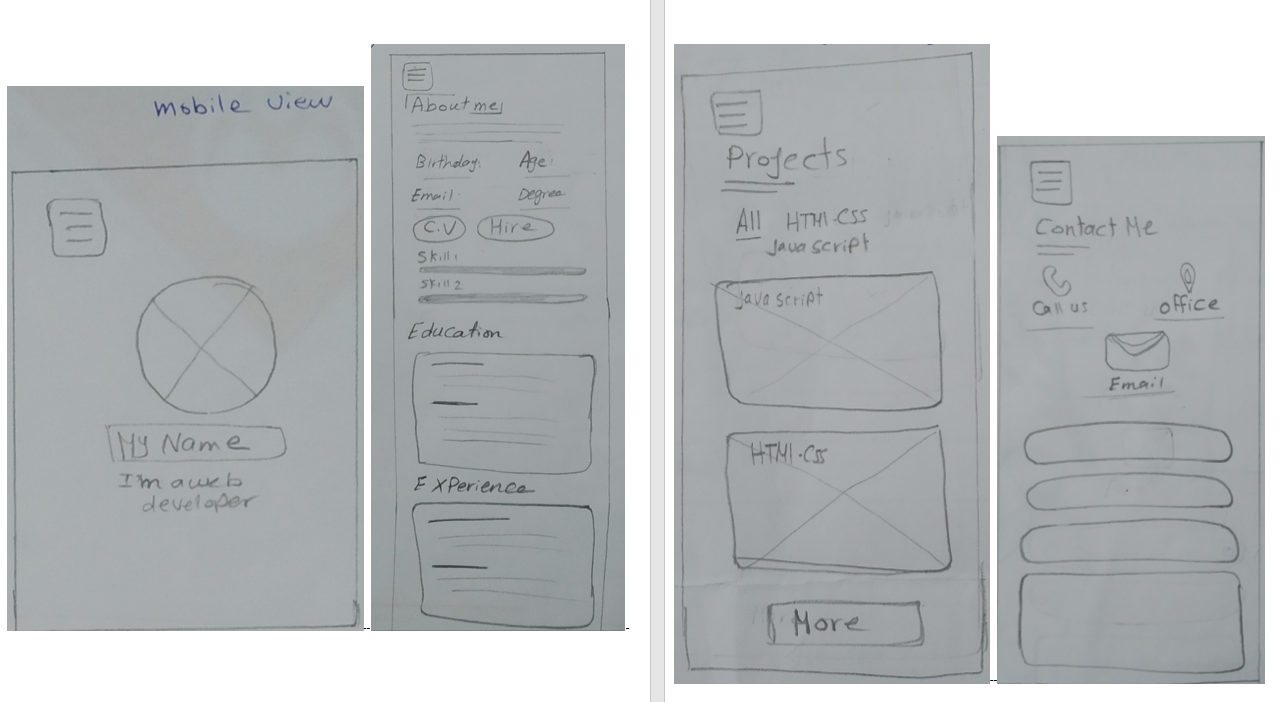 mobile view
My Name
I'm a web
developer
About me
Birthday: Age:
Email: Degree
C.V Hire
Skill 1
Skill 2
Education
EXPerience
Projects
All HTMl-CSS
Java script
Java script
HTMl-CSS
More
Contact Me
Call us office
Email